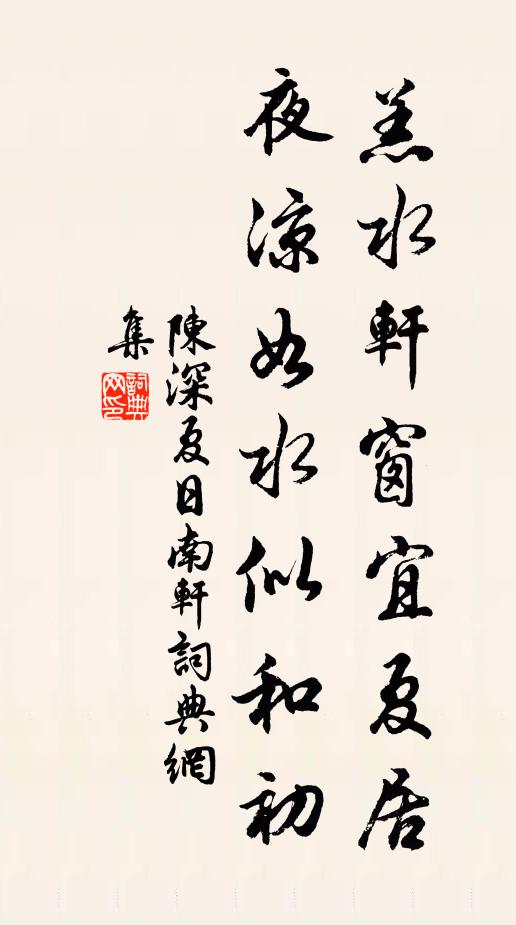 羔水軒窗宜夏居
夜涼如水似和初
陳深夏日南軒詞典網
集
詞典網印